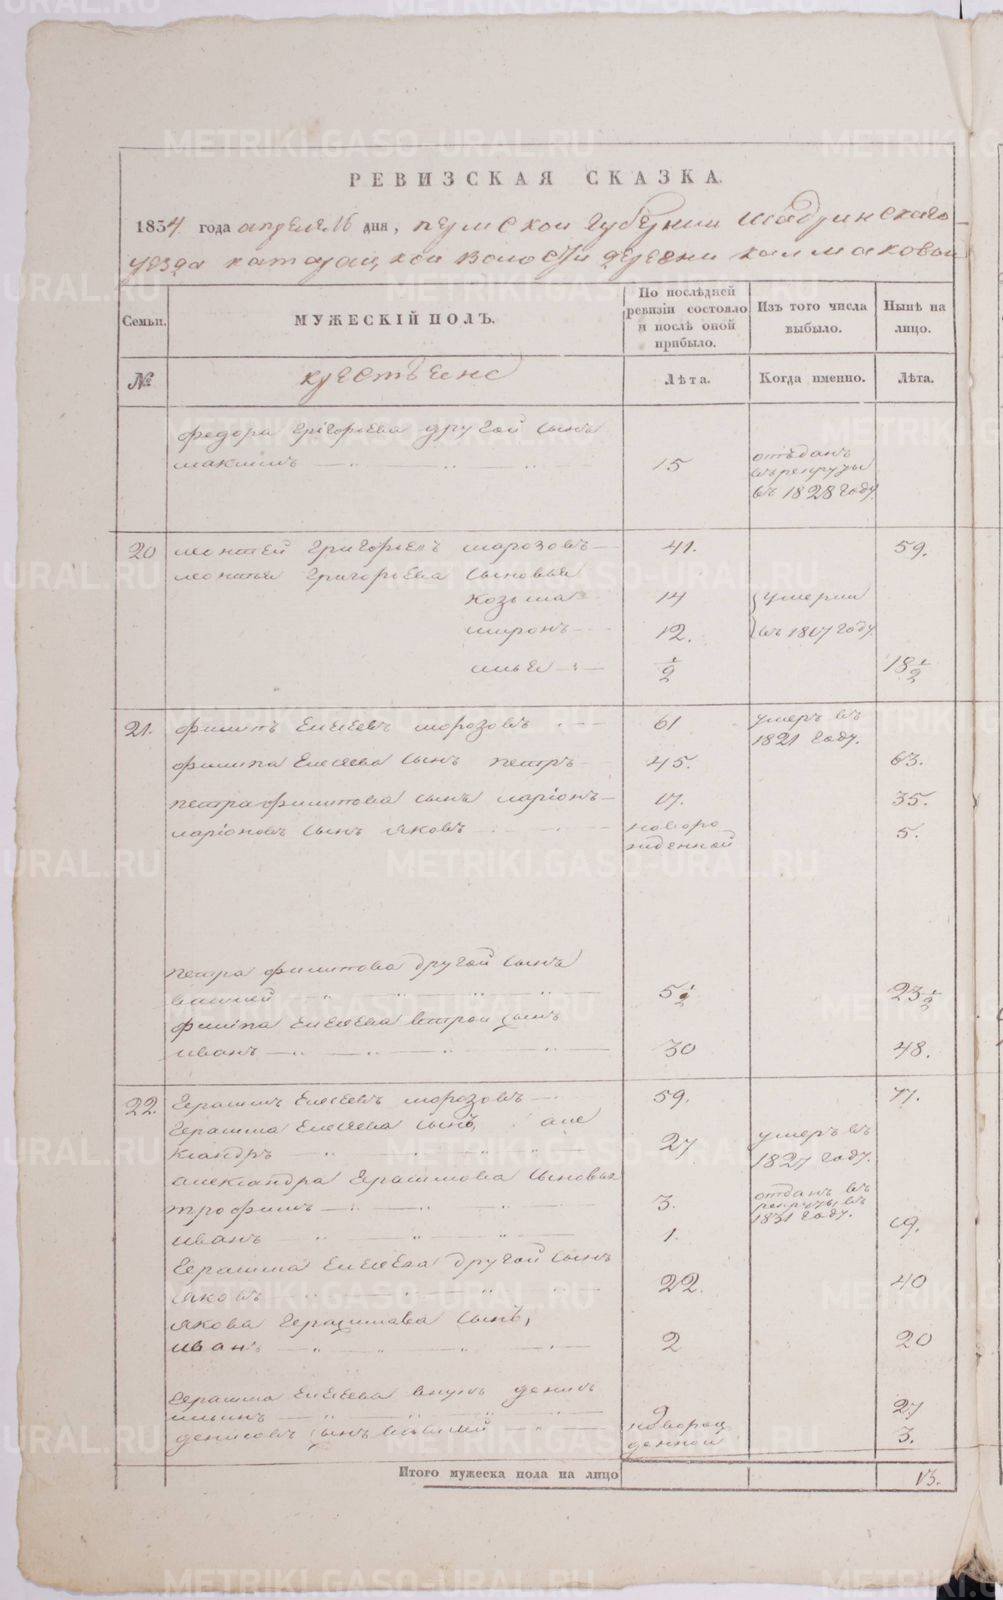 РЕВИЗСКАЯ СКАЗКА.
1834 года апреля 16 дня, пермской Губернии Шадринскаго
уезда катайской волости деревни калмаковой
Семьи. МУЖЕСКІЙ ПОЛЪ. По послѣдней ревизіи состояло и послѣ оной прибыло. Изъ того числа выбыло. Нынѣ на лицо.
№ крестьяне Лѣта. Когда именно. Лѣта.
федора григорьева другой сынъ
максимъ 15 отъданъ въ рекруты въ 1828 году.
20 григорьевъ марозовъ 41. 59.
григорьева сыновья
козьма 14 умерли
миронъ 12. въ 1817 году.
илья ½ 18½
21. филипъ елисеевъ морозовъ 61 умеръ въ 1821 году.
филипа елисеева сынъ петръ 45. 63.
петра филипова сынъ ларіонъ 17. 35.
ларіоновъ сынъ яковъ новорожденной 5.
петра филипова другой сынъ
василей 5½ 23½
филипа елисеева второй сынъ
иванъ 30 48.
22. герасимъ елисеевъ морозовъ 59. 77.
герасима елисеева сынъ, александръ 27 умеръ въ 1827 году.
александра герасимова сыновья
трофимъ 3. отданъ въ рекруты въ 1831 году.
иванъ 1. 19.
герасима елисеева другой сынъ
яковъ 22. 40
якова герасимова сынъ,
иванъ 2 20
герасима елисеева внукъ денисъ
ильинъ 9 27
денисовъ сынъ василей новорожденной 3.
Итого мужеска пола на лицо 13.
METRIKI.GASO-URAL.RU